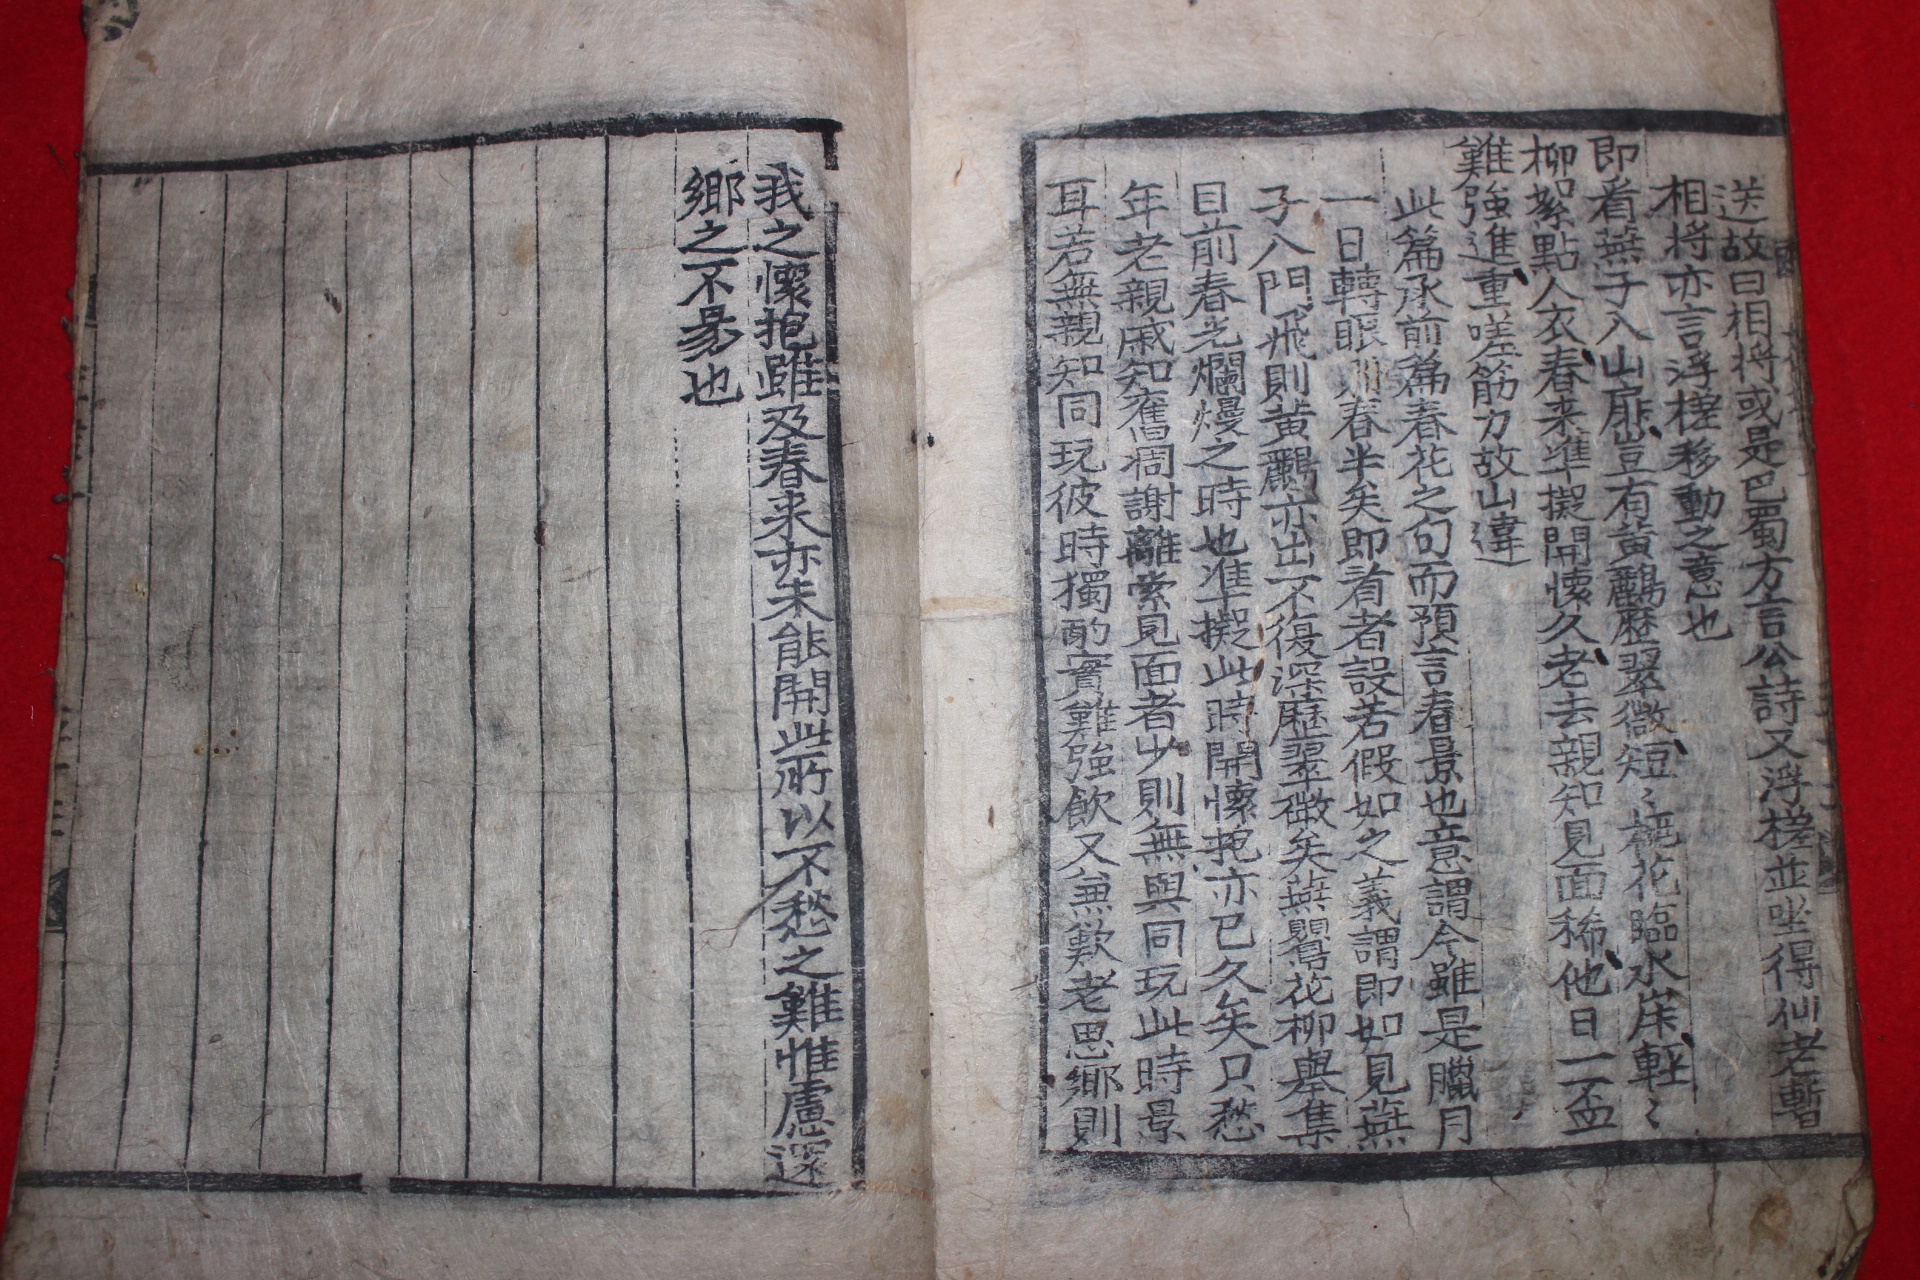 送故曰相将或是巴蜀方言公詩又浮槎並坐得仙老暫
相将亦言浮槎移動之意也
即看燕子入山扉豈有黄鸝歷翠微短〻桃花臨水岸輕〻
柳絮點人衣春来準擬開懷久老去親知見面稀他日一盃
難強進重嗟筋力故山違
此篇承前篇春花之句而預言春景也意謂今雖是臘月
一日轉眼則春半矣即看者設若假如之義謂即如見燕
子入門飛則黄鸝亦出不復深歷翠微矣燕鸎花柳舉集
目前春光爛熳之時也准擬此時開懷抱亦已久矣只愁
年老親戚知舊凋謝離索見面者少則無與同玩此時景
耳若無親知同玩彼時獨酌實難強飲又兼歎老思鄉則
我之懷抱雖及春来亦未能開此所以不愁之難惟慮還
鄉之不易也